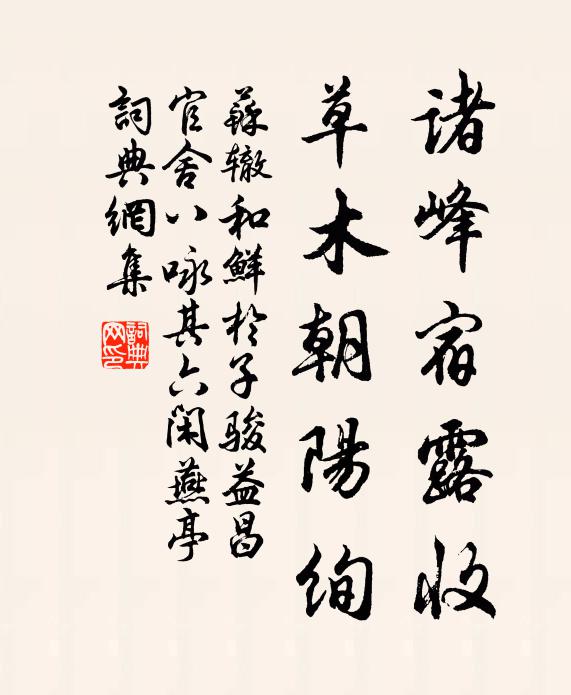 诸峰宿露收
草木朝陽绚
蘇辙和鮮於子骏益昌
官舍八咏其六閑燕亭
詞典網集
詞典
网印